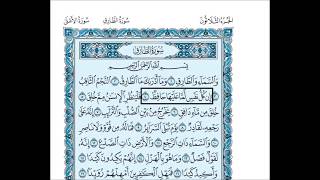 الجزء الثلاثون سورة الطارق سورة الأعلى
سورة الطارق
بسم الله الرحمن الرحيم
والسماء والطارق وما أدراك ما الطارق النجم الثاقب
إن كل نفس لما عليها حافظ فلينظر الإنسان مم خلق
خلق من ماء دافق يخرج من بين الصلب والترائب إنه على
رجعه لقادر يوم تبلى السرائر فما له من قوة ولا ناصر
والسماء ذات الرجع والأرض ذات الصدع إنه
لقول فصل وما هو بالهزل إنهم يكيدون كيدا
وأكيد كيدا فمهل الكافرين أمهلهم رويدا